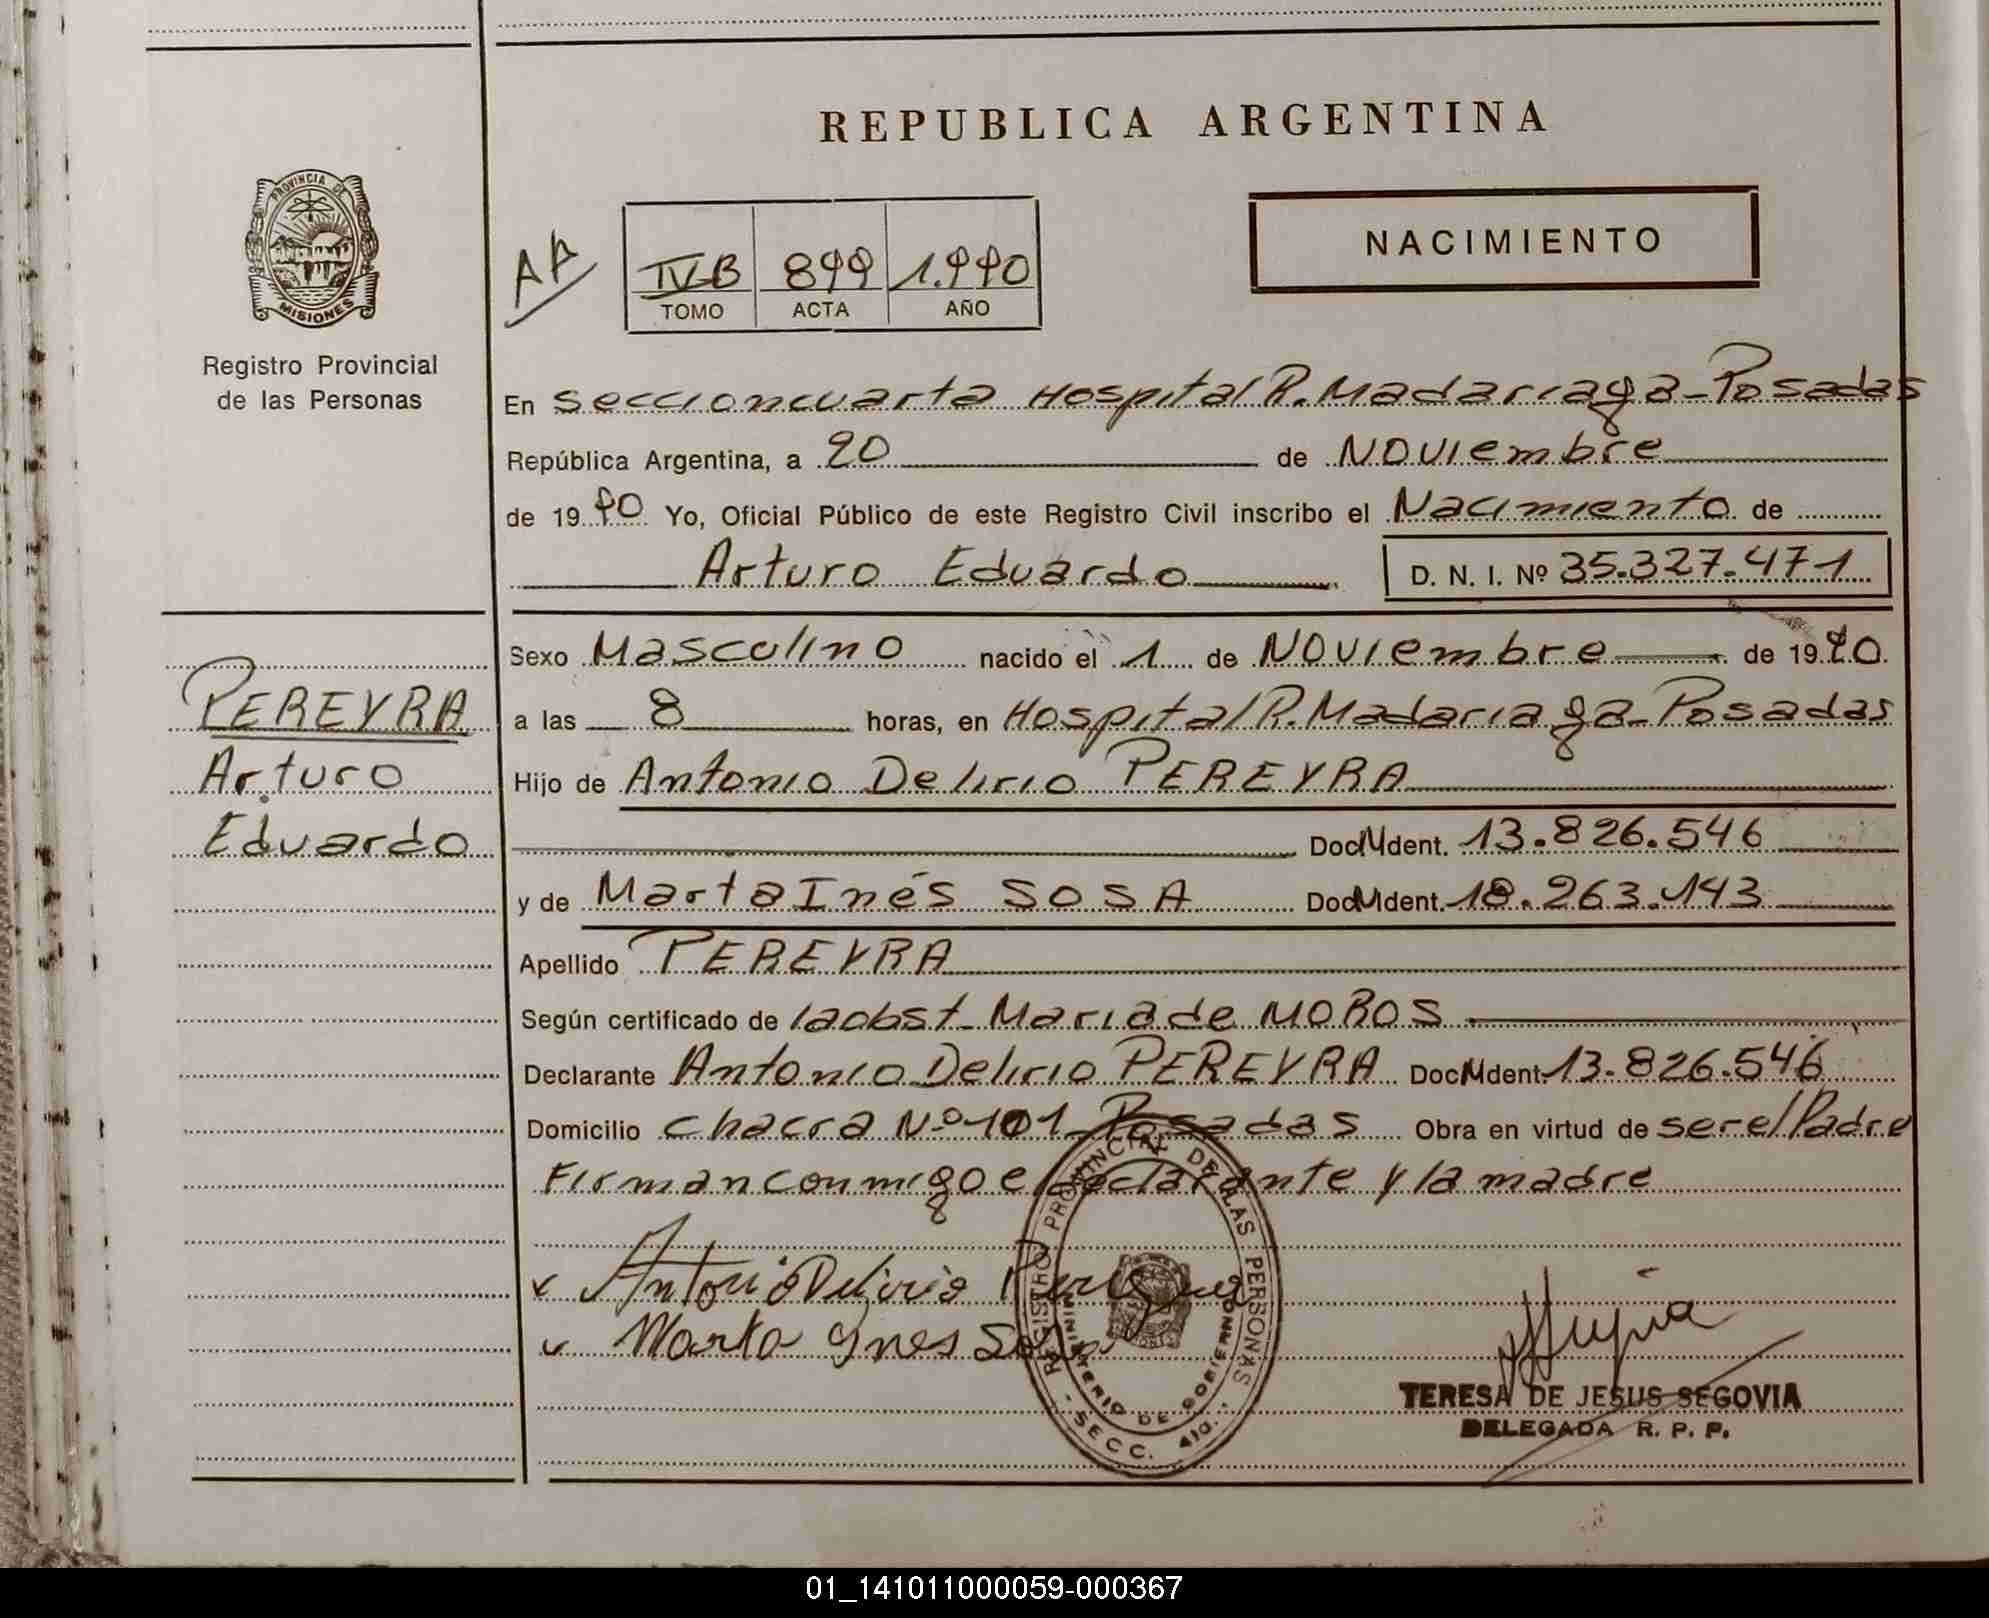 REPUBLICA ARGENTINA
PROVINCIA DE
MISIONES
Registro Provincial
de las Personas
NACIMIENTO
AA
IV-B 899 1.990
TOMO ACTA AÑO
En Seccion cuarta Hospital R. Madariaga - Posadas
República Argentina, a 20 de Noviembre
de 1990 Yo, Oficial Público de este Registro Civil inscribo el Nacimiento de
Arturo Eduardo D. N. I. Nº 35.327.471
Sexo Masculino nacido el 1 de Noviembre de 1990
a las 8 horas, en Hospital R. Madariaga - Posadas
Hijo de Antonio Delirio PEREYRA
Doc. Ident. 13.826.546
y de Marta Inés SOSA Doc. Ident. 18.263.143
Apellido PEREYRA
Según certificado de la obst. Maria de MOROS
Declarante Antonio Delirio PEREYRA Doc. Ident. 13.826.546
Domicilio chacra Nº 101 - Posadas Obra en virtud de ser el Padre
Firman conmigo el declarante y la madre
PEREYRA
Arturo
Eduardo
Antonio Delirio Pereyra
Marta Ynes Sosa
REGISTRO PROVINCIAL DE LAS PERSONAS
MINISTERIO DE GOBIERNO
- SECC. 4ta. -
TERESA DE JESUS SEGOVIA
DELEGADA R. P. P.
01_141011000059-000367